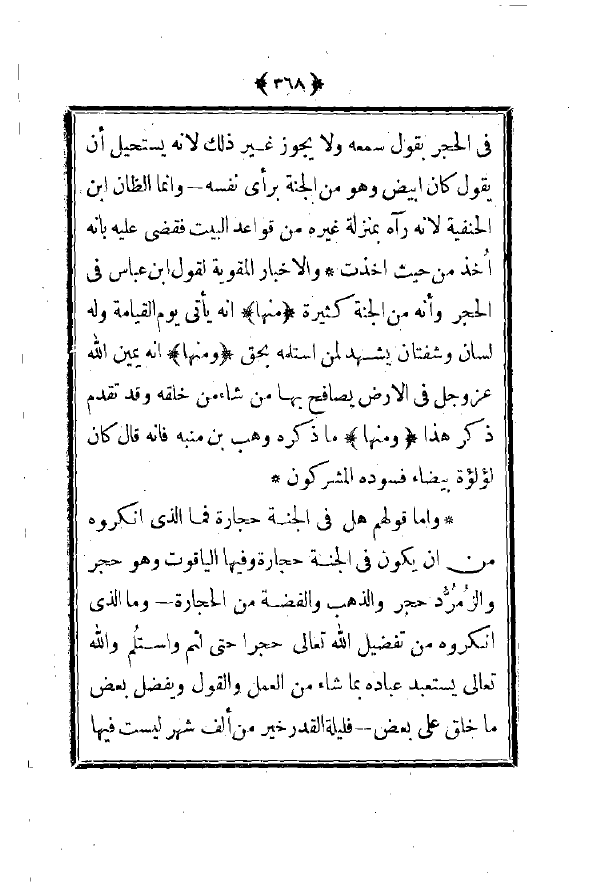 ﴿ ٣٦٨ ﴾
فى الحجر بقول سمعه ولا يجوز غير ذلك لانه يستحيل أن
يقول كان ابيض وهو من الجنة برأى نفسه — وانما الظان ابن
الحنفية لانه رآه بمنزلة غيره من قواعد البيت فقضى عليه بانه
أُخذ من حيث اخذت * والاخبار المقوية لقول ابن عباس فى
الحجر وأنه من الجنة كثيرة ﴿منها﴾ انه يأتى يوم القيامة وله
لسان وشفتان يشهد لمن استلمه بحق ﴿ومنها﴾ انه يمين الله
عز وجل فى الارض يصافح بها من شاء من خلقه وقد تقدم
ذكر هذا ﴿ ومنها﴾ ما ذكره وهب بن منبه فانه قال كان
لؤلؤة بيضاء فسوده المشركون *
* واما قولهم هل فى الجنة حجارة فما الذى انكروه
من ان يكون فى الجنة حجارة وفيها الياقوت وهو حجر
والزُمُرُّد حجر والذهب والفضة من الحجارة — وما الذى
انكروه من تفضيل الله تعالى حجرا حتى لثم واستُلم والله
تعالى يستعبد عباده بما شاء من العمل والقول ويفضل بعض
ما خلق على بعض — فليلة القدر خير من ألف شهر ليست فيها